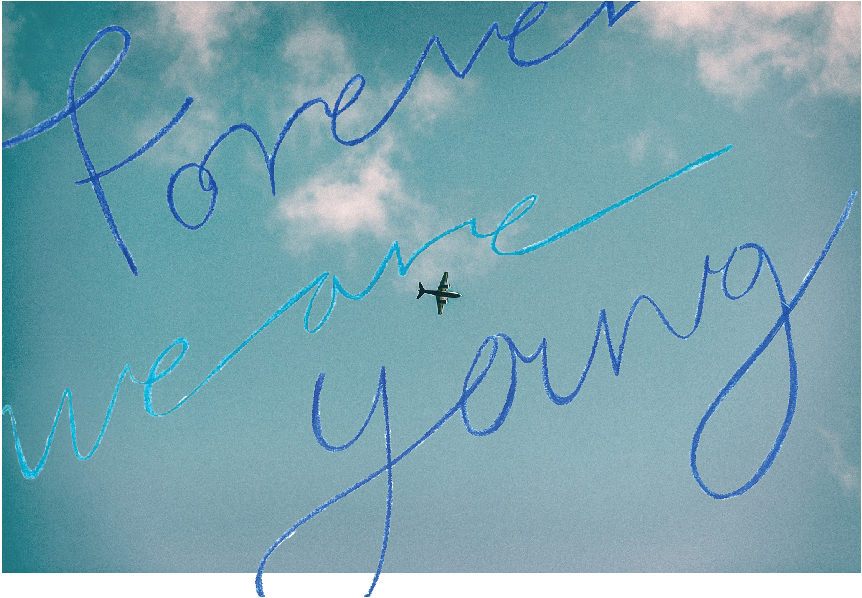 Forever
we are
young